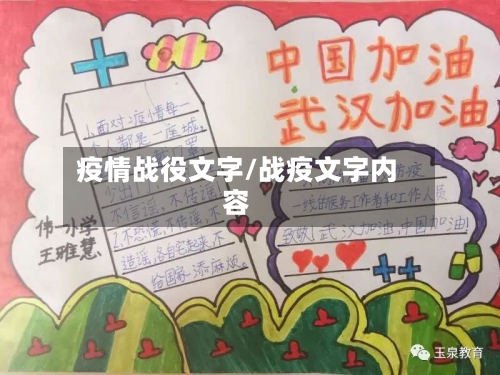 中国加油
武汉加油
1.面对疫情每一
个人都是一座城。
疫情战役文字/战疫文字内
容
少出门
不信谣，不传谣，
2.不恐慌，不传谣，不
造谣，各自宅起来，不
给国家添麻烦。
一线的医务工作者和工作人员
致敬！武汉加油，中国加油！
伟一小学
王雅慧
玉泉教育